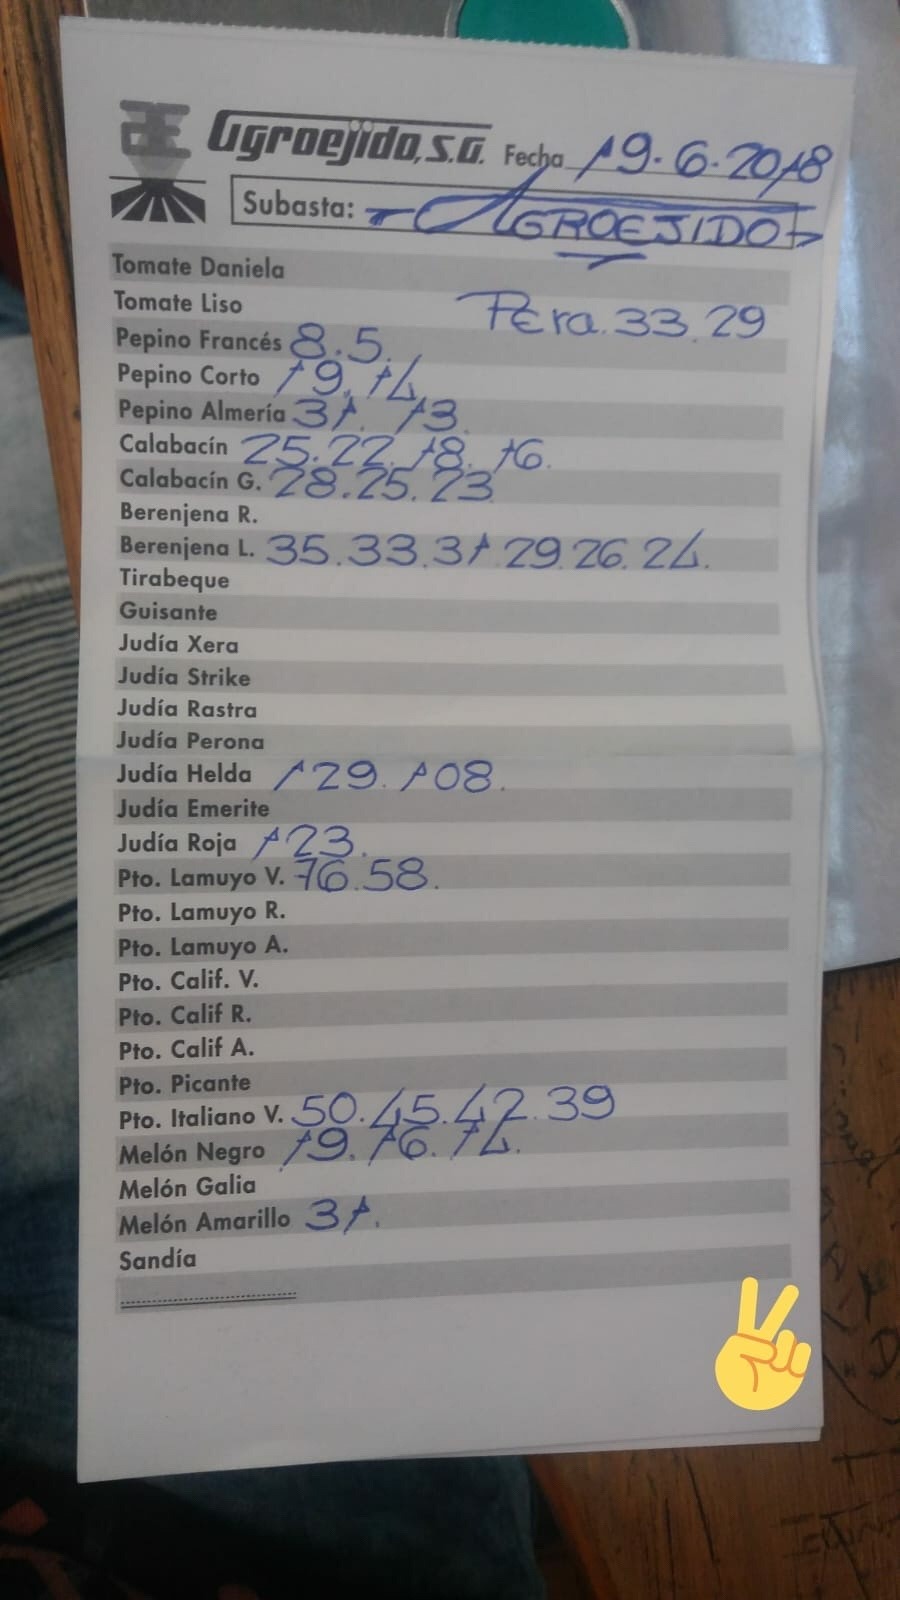 Agroejido, S.A. Fecha 19.6.2018
Subasta: AGROEJIDO
Tomate Daniela
Tomate Liso Pera. 33. 29
Pepino Francés 8. 5.
Pepino Corto 19. 14
Pepino Almería 31. 13.
Calabacín 25. 22. 18. 16.
Calabacín G. 28. 25. 23
Berenjena R.
Berenjena L. 35. 33. 31. 29. 26. 24.
Tirabeque
Guisante
Judía Xera
Judía Strike
Judía Rastra
Judía Perona
Judía Helda 129. 108.
Judía Emerite
Judía Roja 123.
Pto. Lamuyo V. 76. 58.
Pto. Lamuyo R.
Pto. Lamuyo A.
Pto. Calif. V.
Pto. Calif R.
Pto. Calif A.
Pto. Picante
Pto. Italiano V. 50. 45. 42. 39
Melón Negro 19. 16. 14.
Melón Galia
Melón Amarillo 31.
Sandía